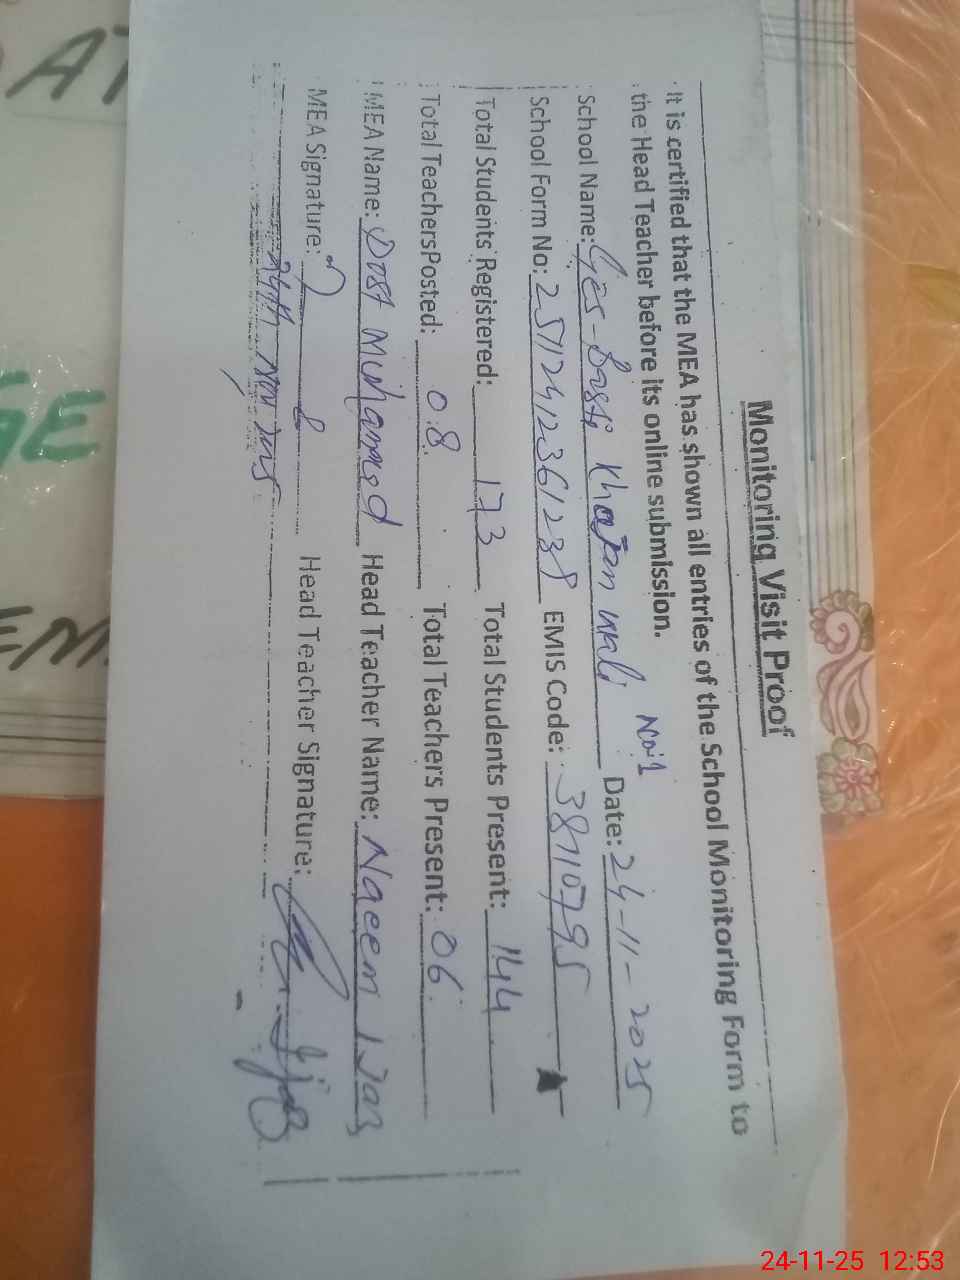 Monitoring Visit Proof
It is certified that the MEA has shown all entries of the School Monitoring Form to
the Head Teacher before its online submission.
No:1
School Name: Basti Khajan wali Date: 24-11-2025
School Form No: 25112412361238 EMIS Code: 38110795
Total Students Registered: 173 Total Students Present: 144
Total Teachers Posted: 08 Total Teachers Present: 06
MEA Name: Dost Muhammad Head Teacher Name: Naeem Ijaz
MEA Signature: Head Teacher Signature:
24th Nov 2025
AT
GE
24-11-25 12:53